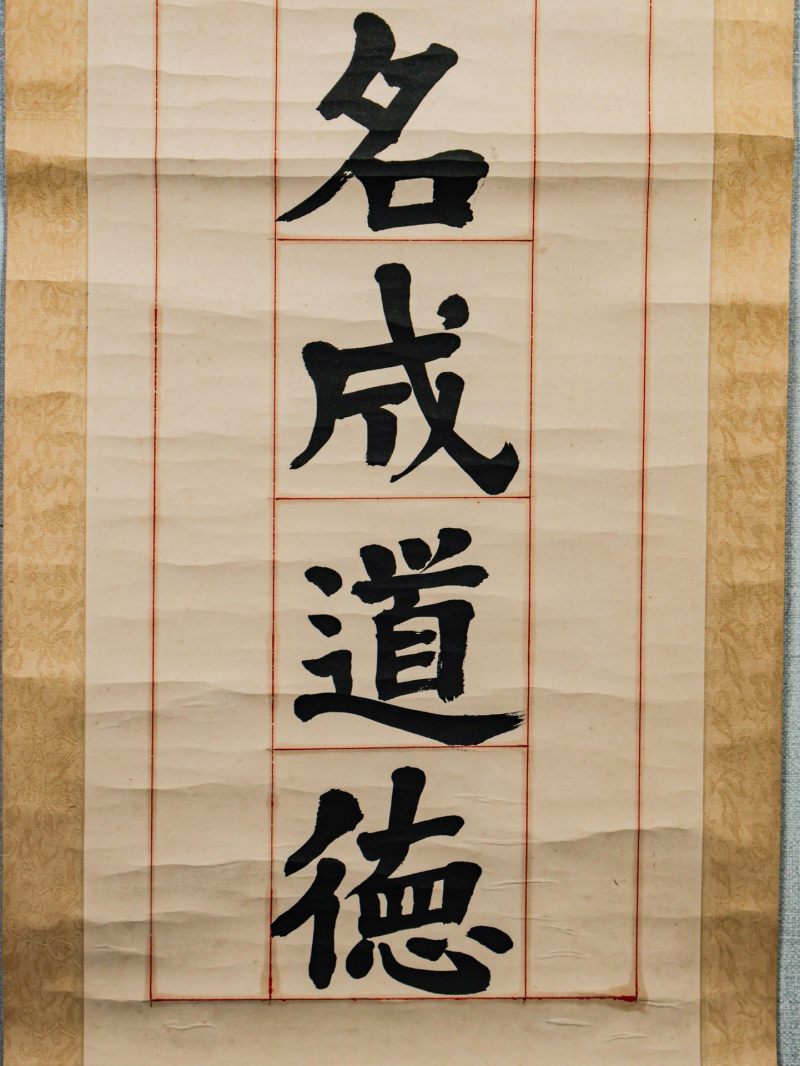 名成道德